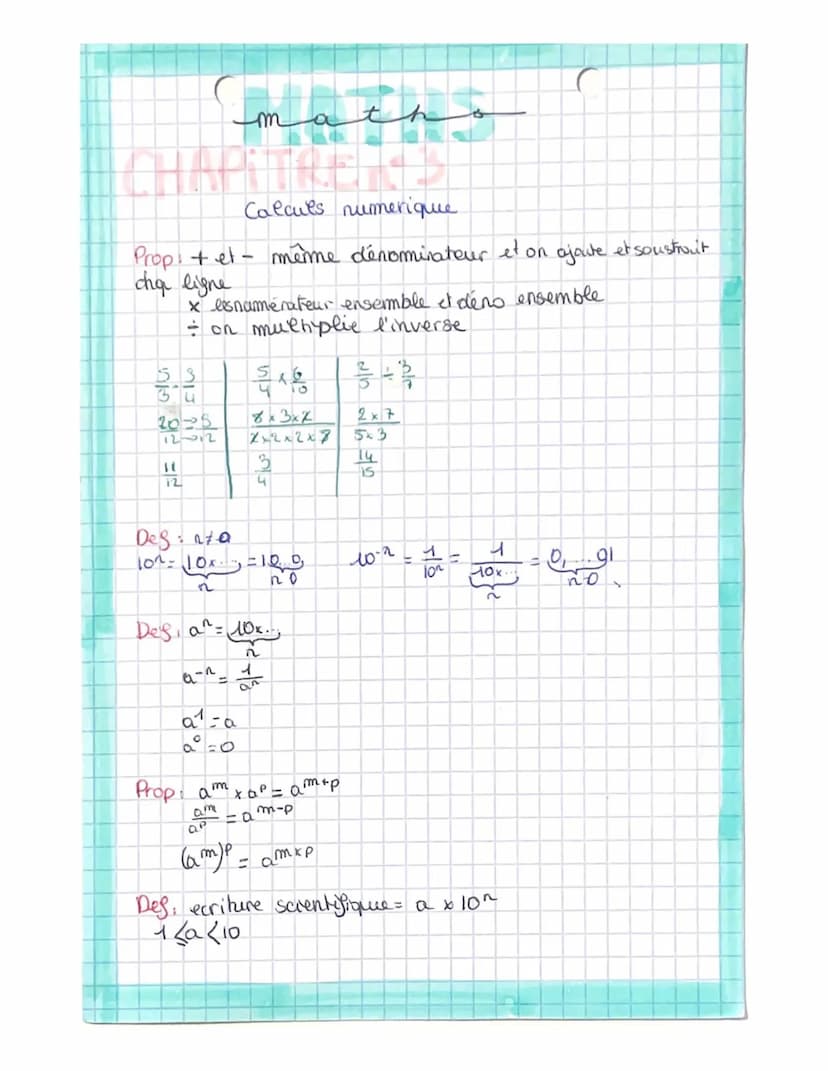 MATHS
maths
CHAPiTRE n°3
Calculs numerique
Prop: + et - même dénominateur et on ajoute et soustrait
chq ligne
× les numérateur ensemble et déno ensemble
÷ on multiplie l'inverse
5/3 - 3/4 | 5/4 × 6/10 | 2/5 ÷ 3/7
20/12 → 9/12 | 8×3×2/2×2×2×8 | 2×7/5×3
11/12 | 3/4 | 14/15
Def: n≠0
10ⁿ = 10×... = 10..0, 10⁻ⁿ = 1/10ⁿ = 1/10×... = 0,...01
n n 0 n n 0
Def: aⁿ = 10×...
n
a⁻ⁿ = 1/aⁿ
a¹ = a
a⁰ = 0
Prop: aᵐ × aᵖ = aᵐ⁺ᵖ
aᵐ/aᵖ = aᵐ⁻ᵖ
(aᵐ)ᵖ = aᵐˣᵖ
Def: ecriture scientifique = a × 10ⁿ
1 ≤ a < 10